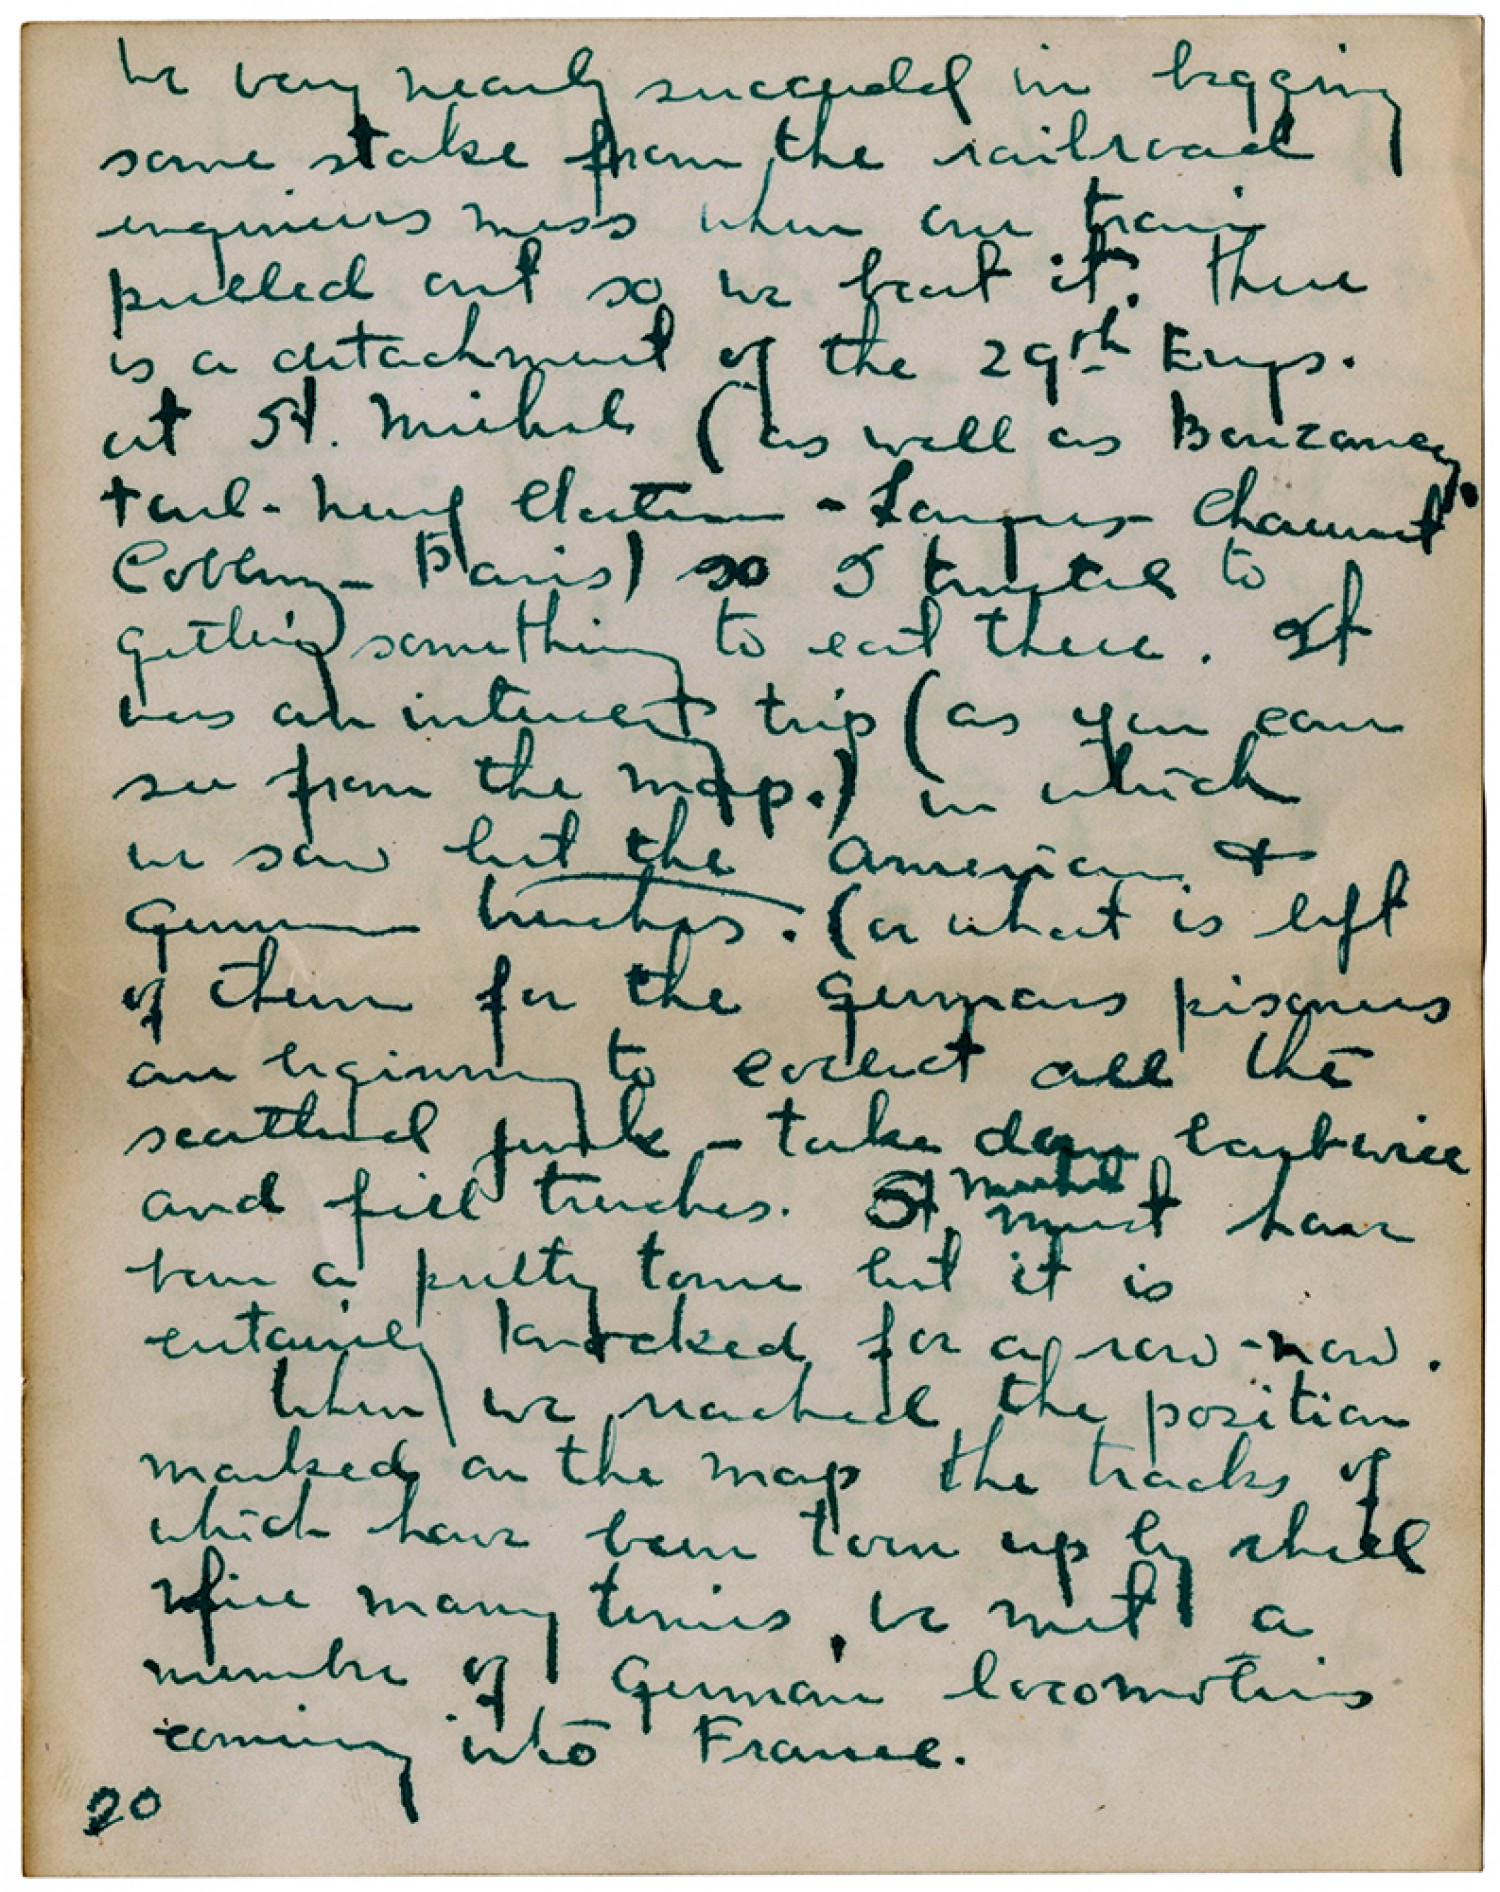 We very nearly succeeded in begging
some stake from the railroad
engineers mess when our train
pulled out so we beat it. There
is a detachment of the 29th Engs.
at St. Mihiel (as well as Bauzemont
Toul - Neuf Chateau - Langres Chaumont
Coblenz - Paris) so I trusted to
getting something to eat there. It
was an interest trip (as you can
see from the map.) in which
we saw both the American &
German trenches. (or what is left
of them for the Germans pisoners
are beginning to collect all the
scattered junk - take down barb-wire
and fill trenches. St Mihiel must have
been a pretty town but it is
certainly knocked for a row - now.
When we reached the position
marked on the map the tracks of
which have been torn up by shell
fire many times, we met a
number of German locomotives
coming into France.
20